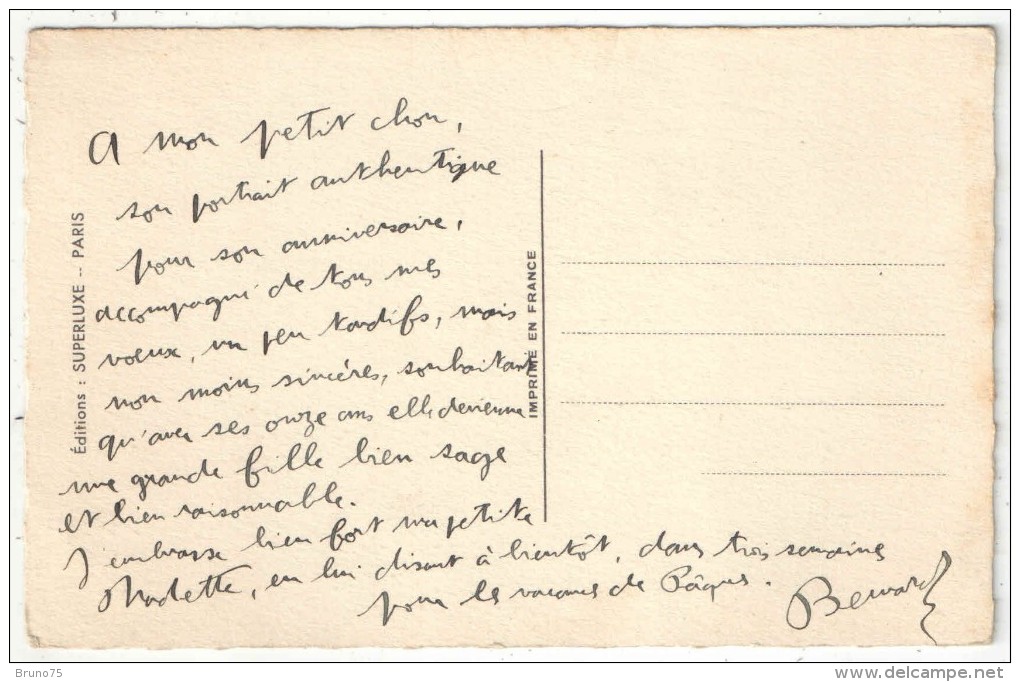 A mon petit chou,
son portrait authentique
pour son anniversaire,
accompagné de tous mes
voeux, un peu tardifs, mais
non moins sincères, souhaitant
qu'avec ses onze ans elle devienne
une grande fille bien sage
et bien raisonnable.
J'embrasse bien fort ma petite
Madette, en lui disant à bientôt, dans trois semaines
pour les vacances de Pâques.
Bernard
Éditions : SUPERLUXE -- PARIS
IMPRIMÉ EN FRANCE
Bruno75
www.delcampe.net